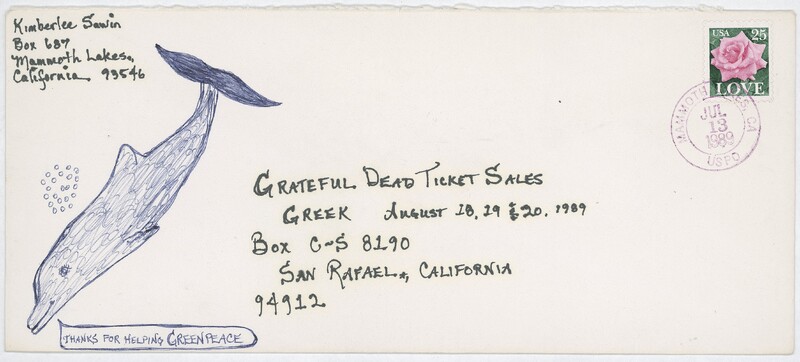 Kimberlee Sawin
Box 687
Mammoth Lakes,
California 93546
USA 25
LOVE
MAMMOTH LAKES, CA
JUL
13
1989
USPO
GRATEFUL DEAD TICKET SALES
GREEK AUGUST 18, 19 & 20, 1989
Box C-S 8190
SAN RAFAEL, CALIFORNIA
94912
THANKS FOR HELPING GREENPEACE